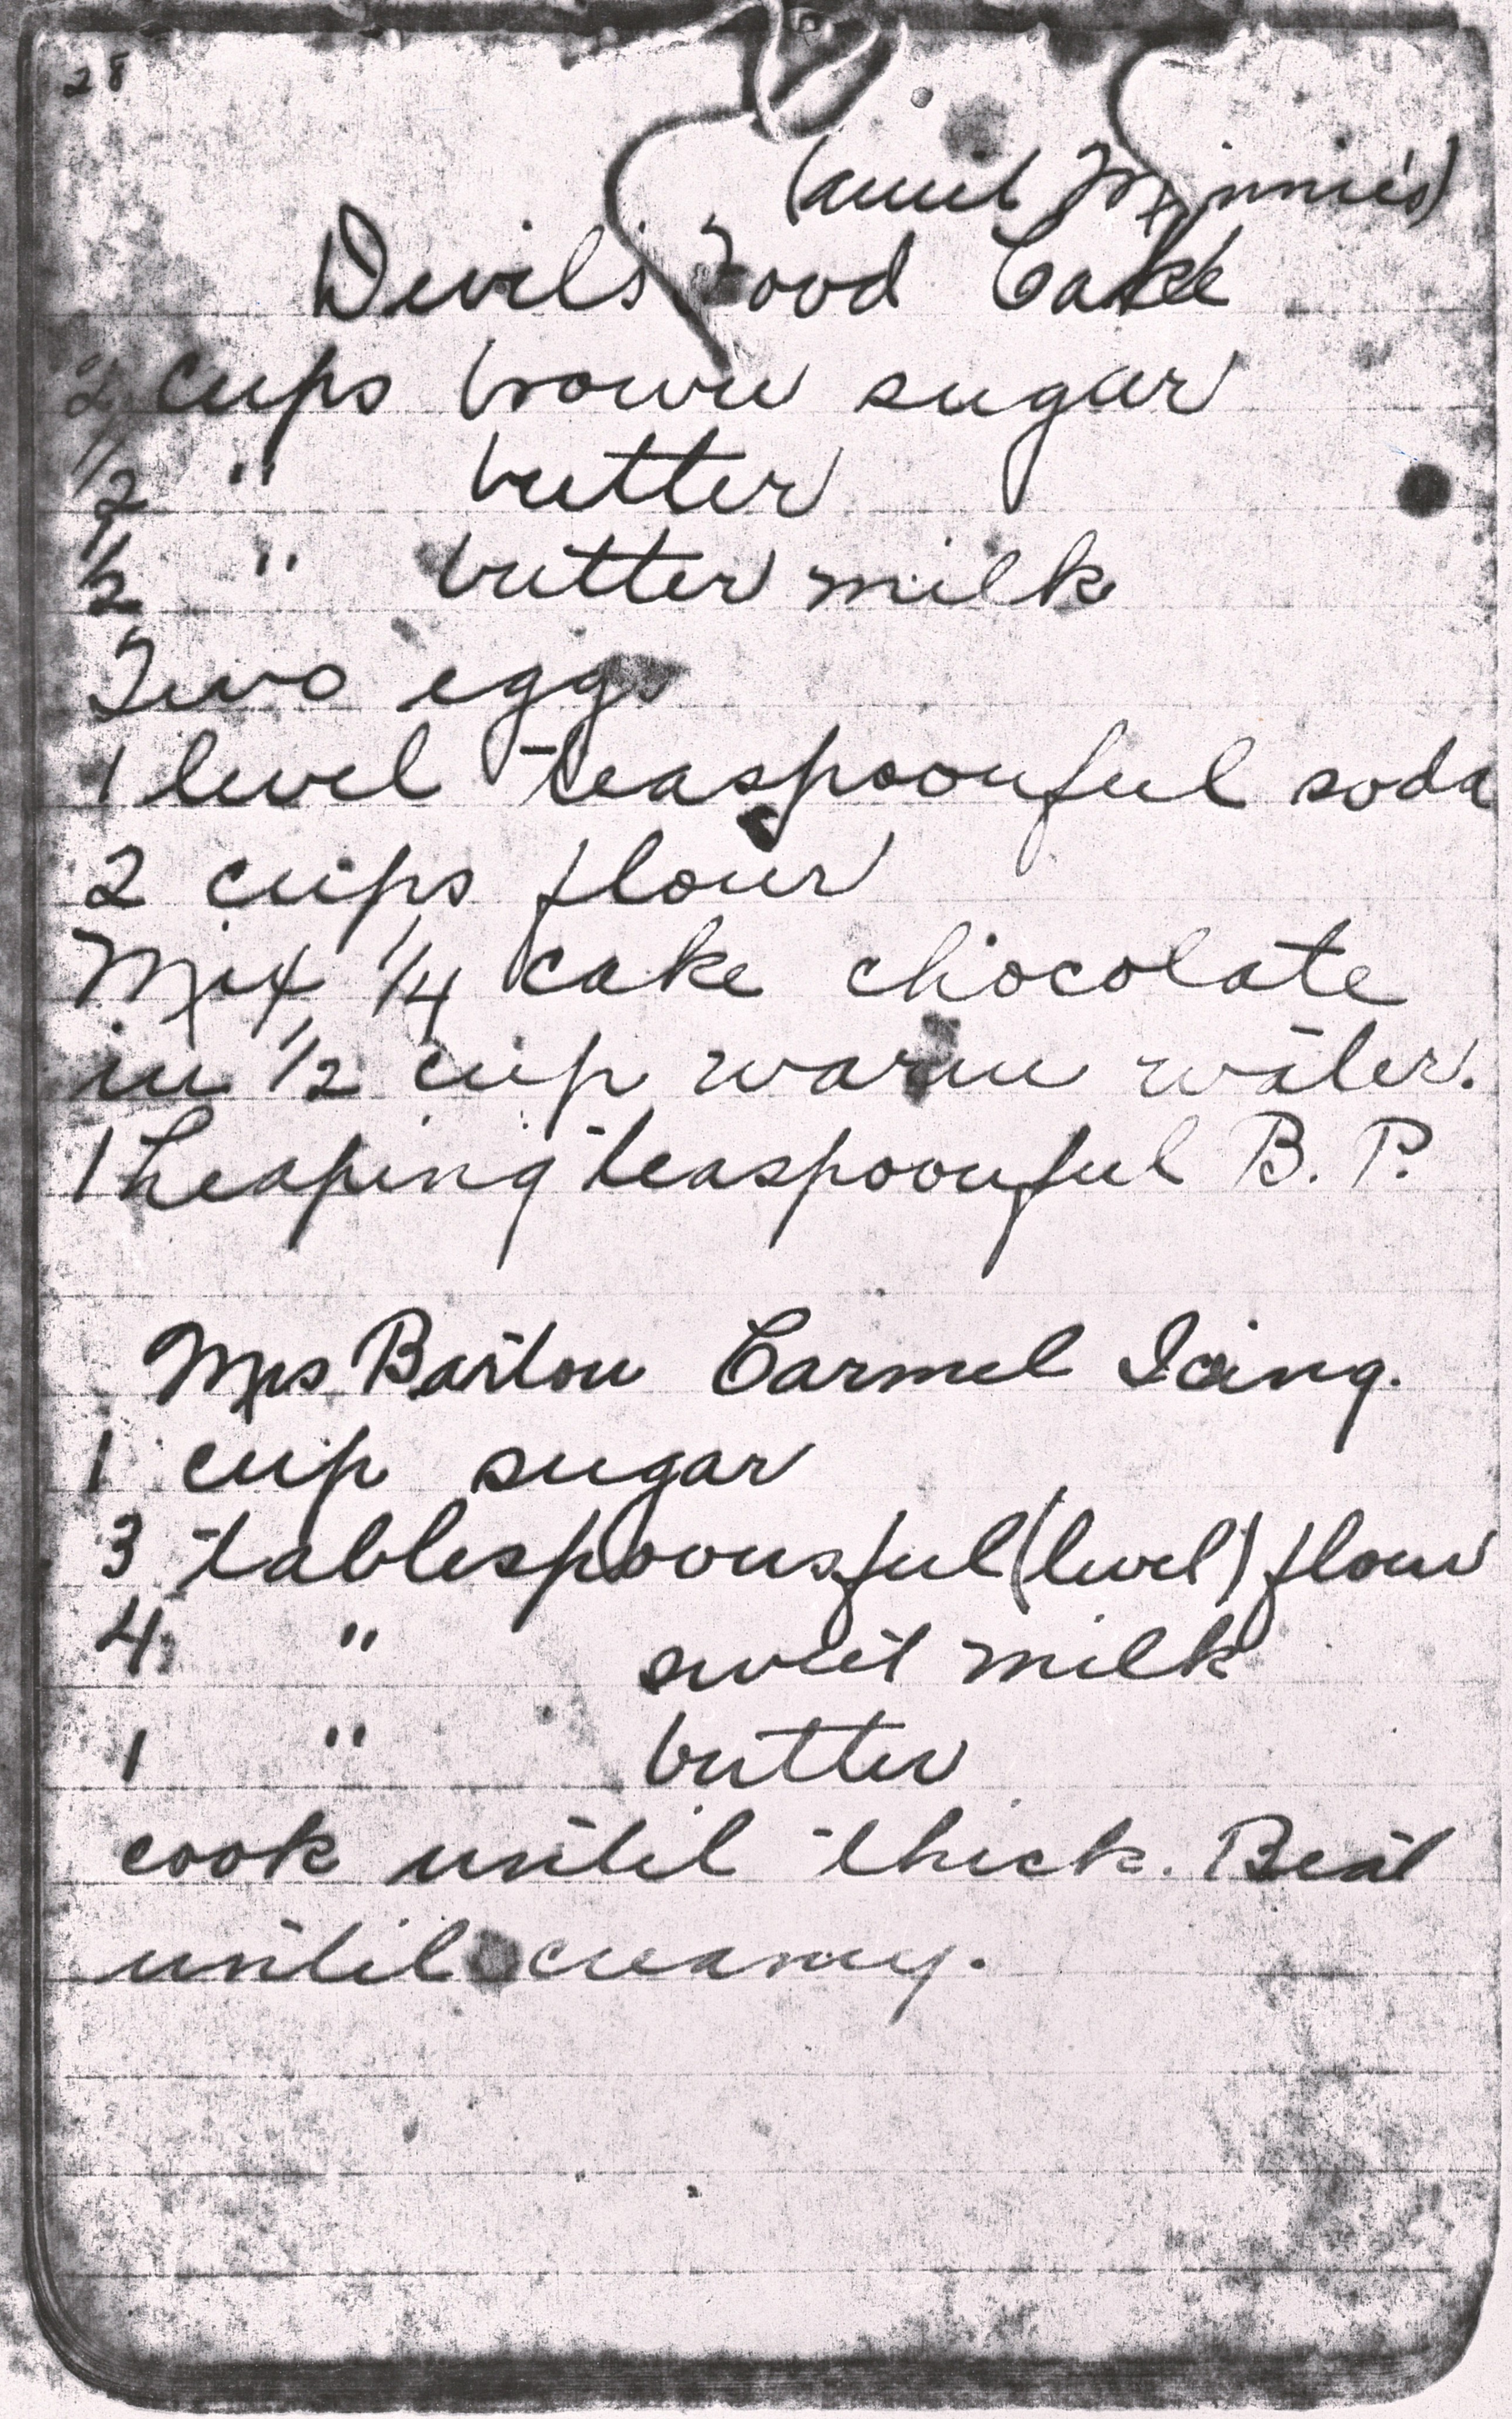 28
(aunt Minnie's)
Devil's Food Cake
2 cups brown sugar
1/2 " butter
1/2 " butter milk
Two eggs
1 level teaspoonful soda
2 cups flour
Mix 1/4 cake chocolate
in 1/2 cup warm water.
1 heaping teaspoonful B. P.
Mrs Barton Carmel Icing.
1 cup sugar
3 tablespoonsful (level) flour
4 " sweet milk
1 " butter
cook until thick. Beat
until creamy.